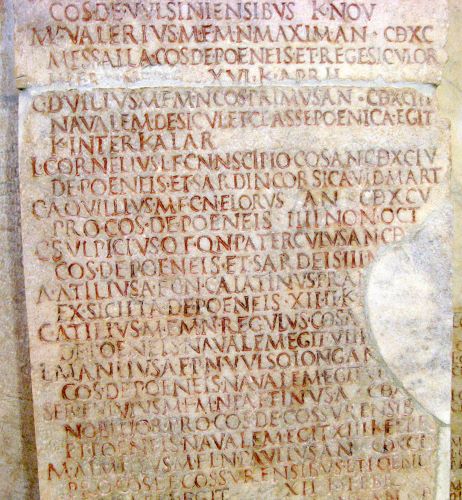 COS DE VVLSINIENSIBVS K NOV
M VALERIVS M F M N MAXIMAN · CDXC
MESSALLA COS DE POENEIS ET REGE SICVLOR
XVI K APRIL
C DVILIVS M F M N COS PRIMVS AN · CDXCIII
NAVALEM DE SICVL ET CLASSE POENICA EGIT
K INTERKALAR
L CORNELIVS L F CN N SCIPIO COS AN CDXCIV
DE POENEIS ET SARDIN CORSICA V ID MART
C AQVILLIVS M F C N FLORVS AN · CDXCV
PRO COS DE POENEIS IIII NON OCT
C SVLPICIVS Q F Q N PATERCVLVS AN CD
COS DE POENEIS ET SARDEIS III N
A ATILIVS A F C N CALATINVS PRA
EX SICILIA DE POENEIS XIIII K
C ATILIVS M F M N REGVLVS COS A
DE POENEIS NAVALEM EGIT VIII
L MANLIVS A F P N VVLSO LONG AN
COS DE POENEIS NAVALEM EGIT
SER FVLVIVS M F M N PAETINVS A CDXC
NOBILIOR PRO COS DE COSSVRENSIB
ET POENEIS NAVALEM EGIT XIII K FEB
M AIMILIVS M F L N PAVLLVS AN CDXCI
PRO COS DE COSSVRENSIBVS ET POENEI
EGIT XII K FEBR